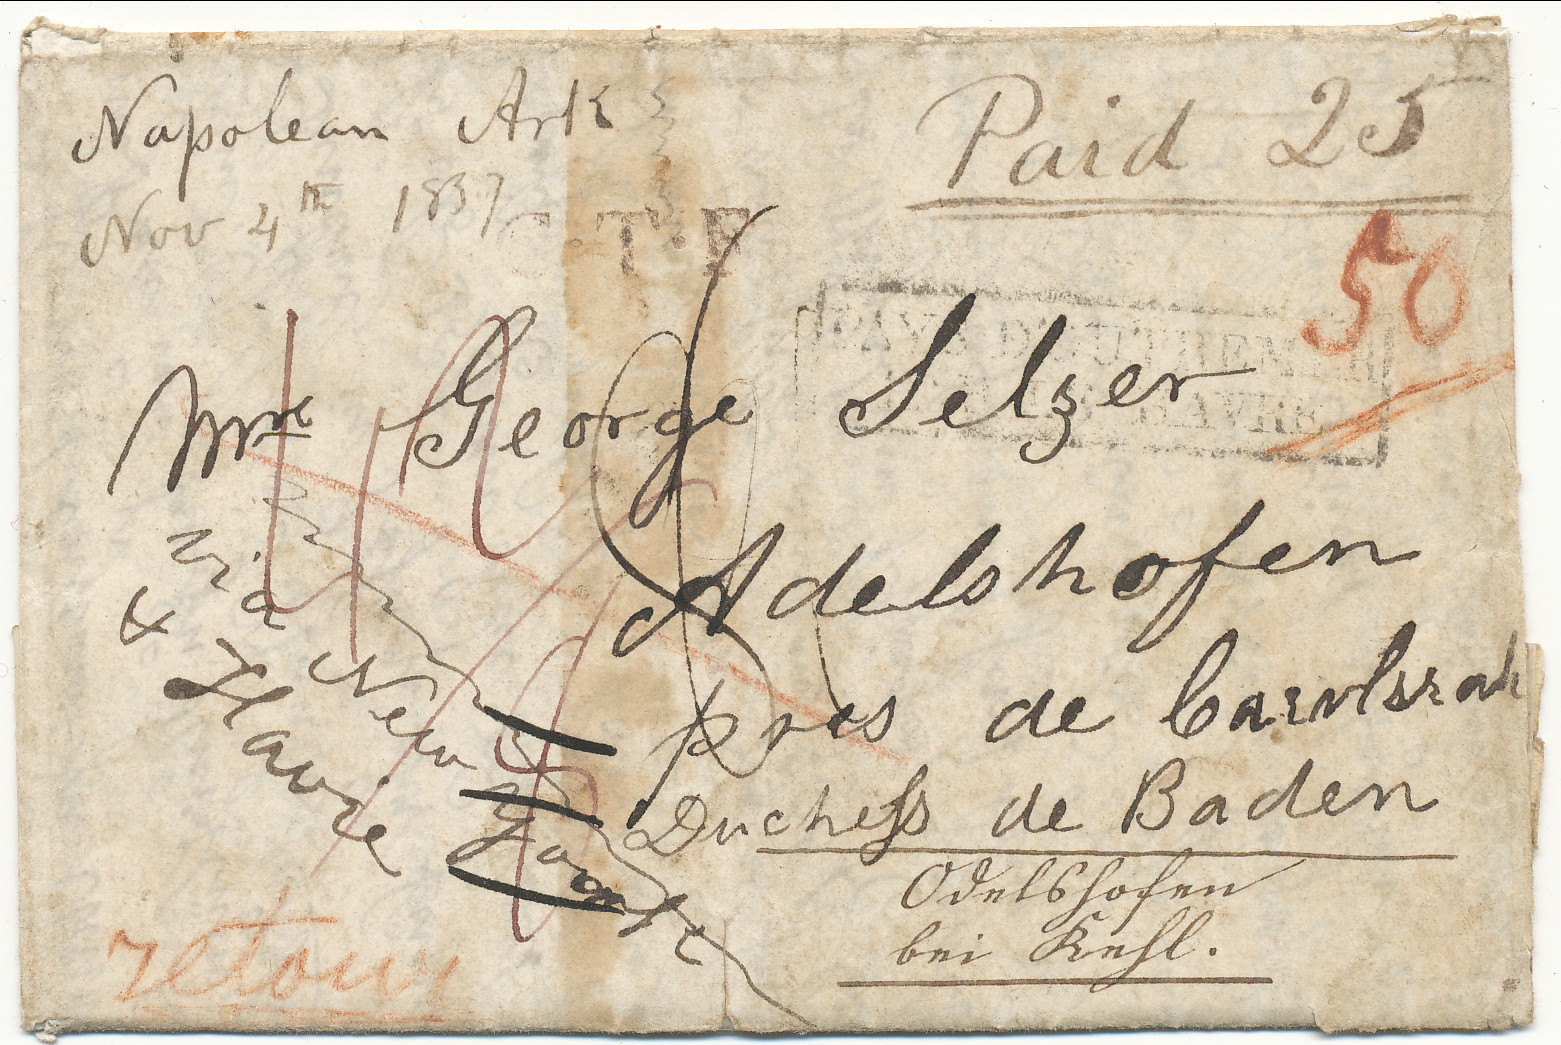 Napolean Ark
Nov 4th 1837
Paid 25
C.F.T.F
50
PAYS D'OUTREMER
HAVRE
Mre George Selzer
Adelshofen
pres de Carlsrah
Duchess de Baden
Odelshofen
bei Kehl.
via New York
& Havre
retour